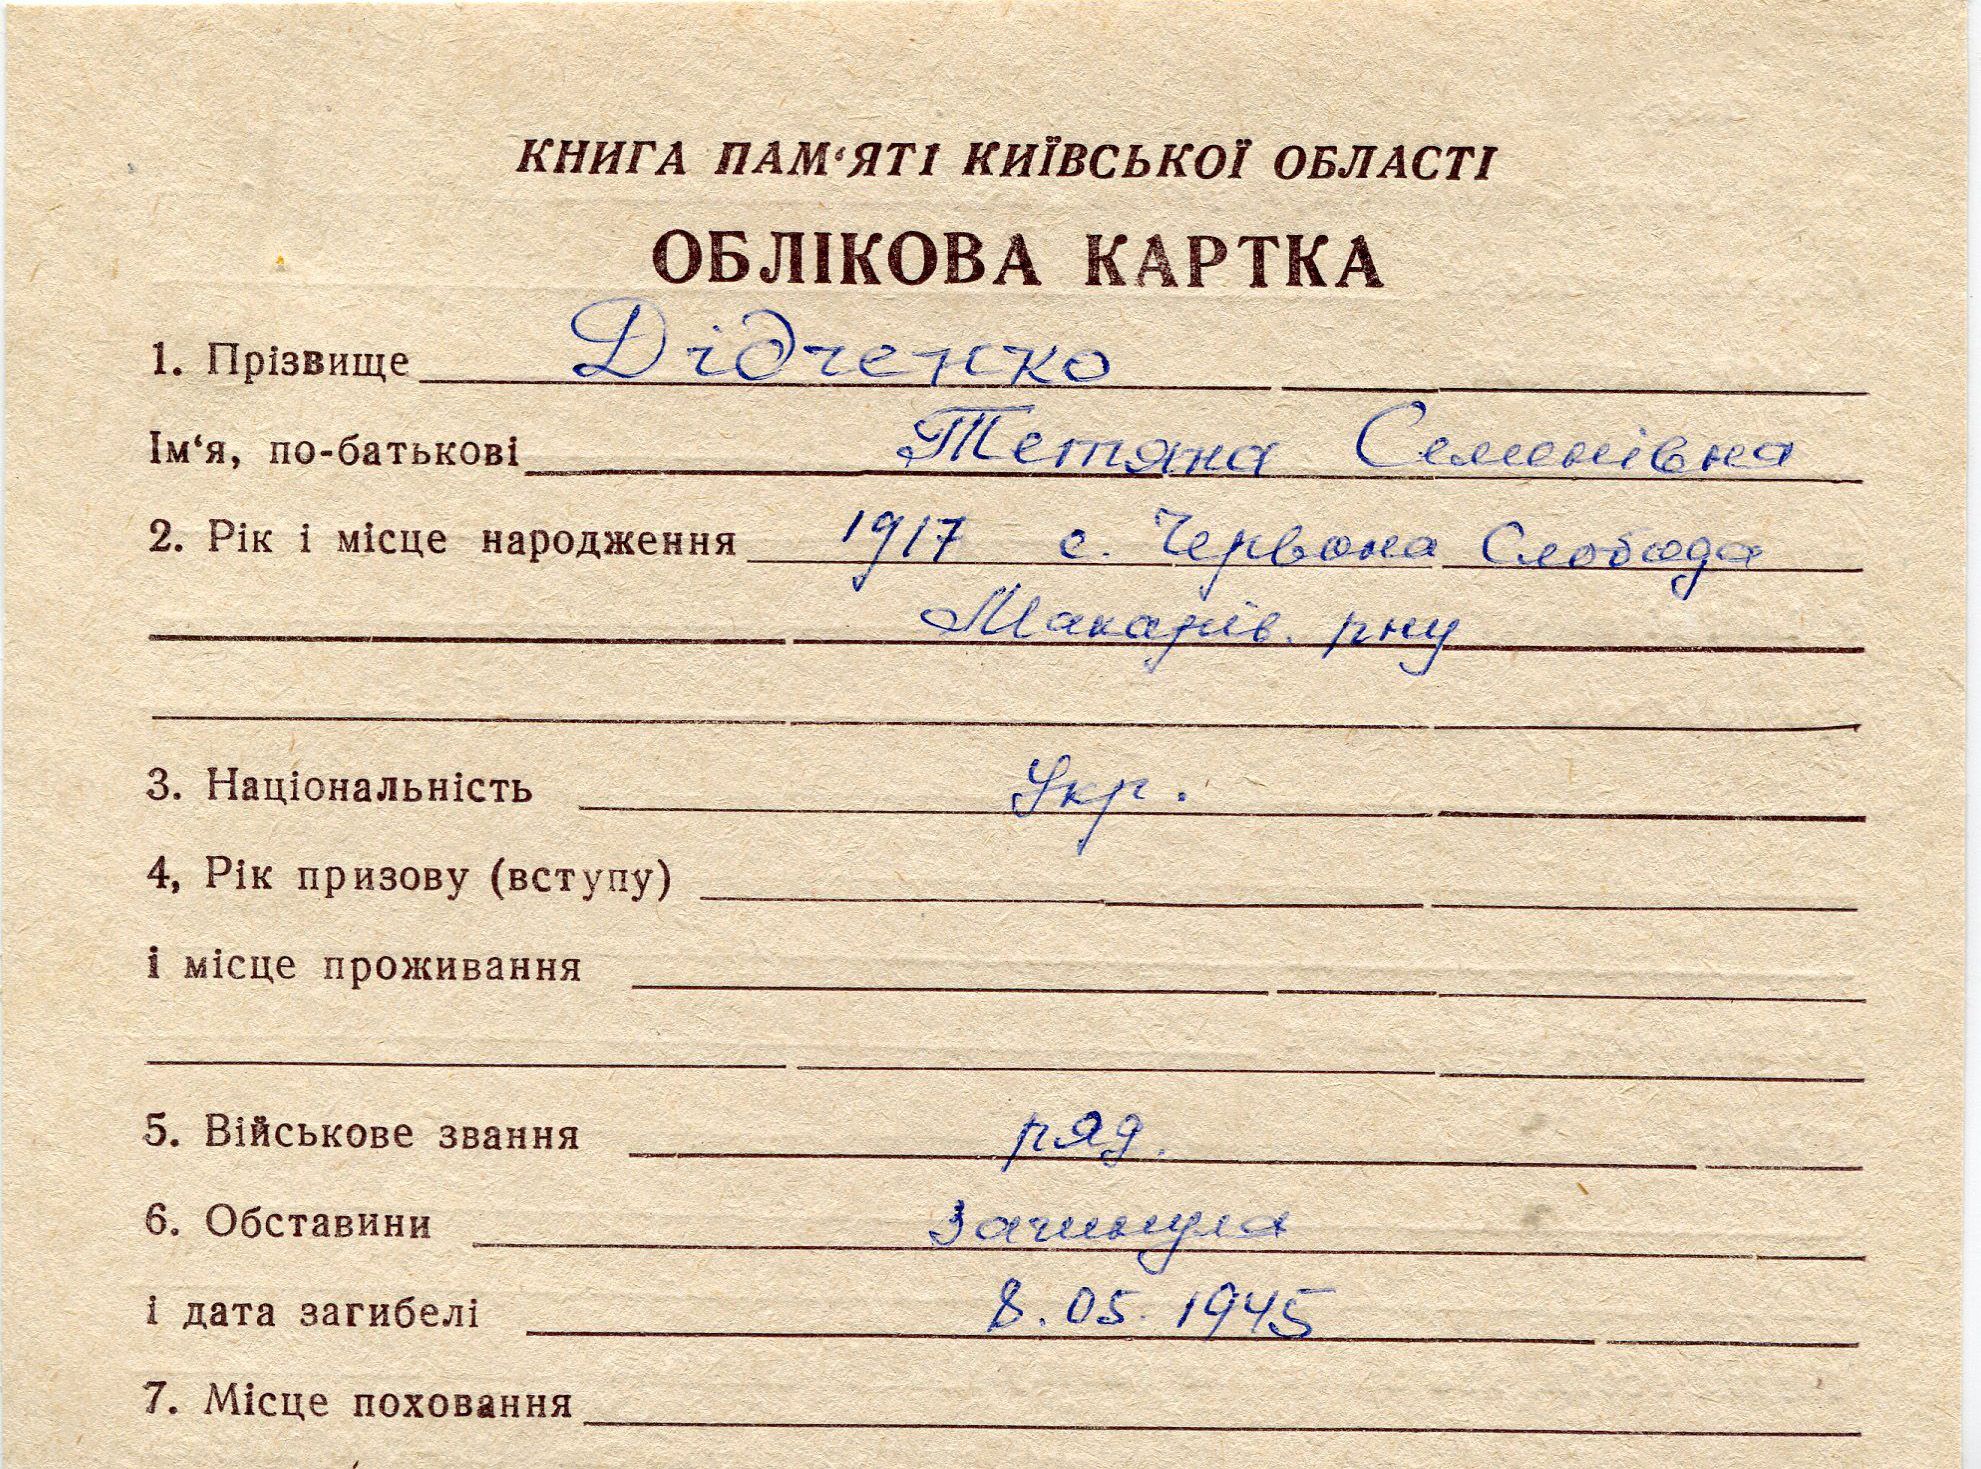 КНИГА ПАМ‘ЯТІ КИЇВСЬКОЇ ОБЛАСТІ
ОБЛІКОВА КАРТКА
1. Прізвище Дідченко
Ім‘я, по-батькові Тетяна Семенівна
2. Рік і місце народження 1917 с. Червона Слобода
Макарів. рну
3. Національність Укр.
4, Рік призову (вступу)
і місце проживання
5. Військове звання ряд.
6. Обставини загинула
і дата загибелі 8.05.1945
7. Місце поховання